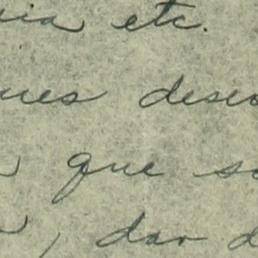 ia etc.
ues dese
que so
, dar d